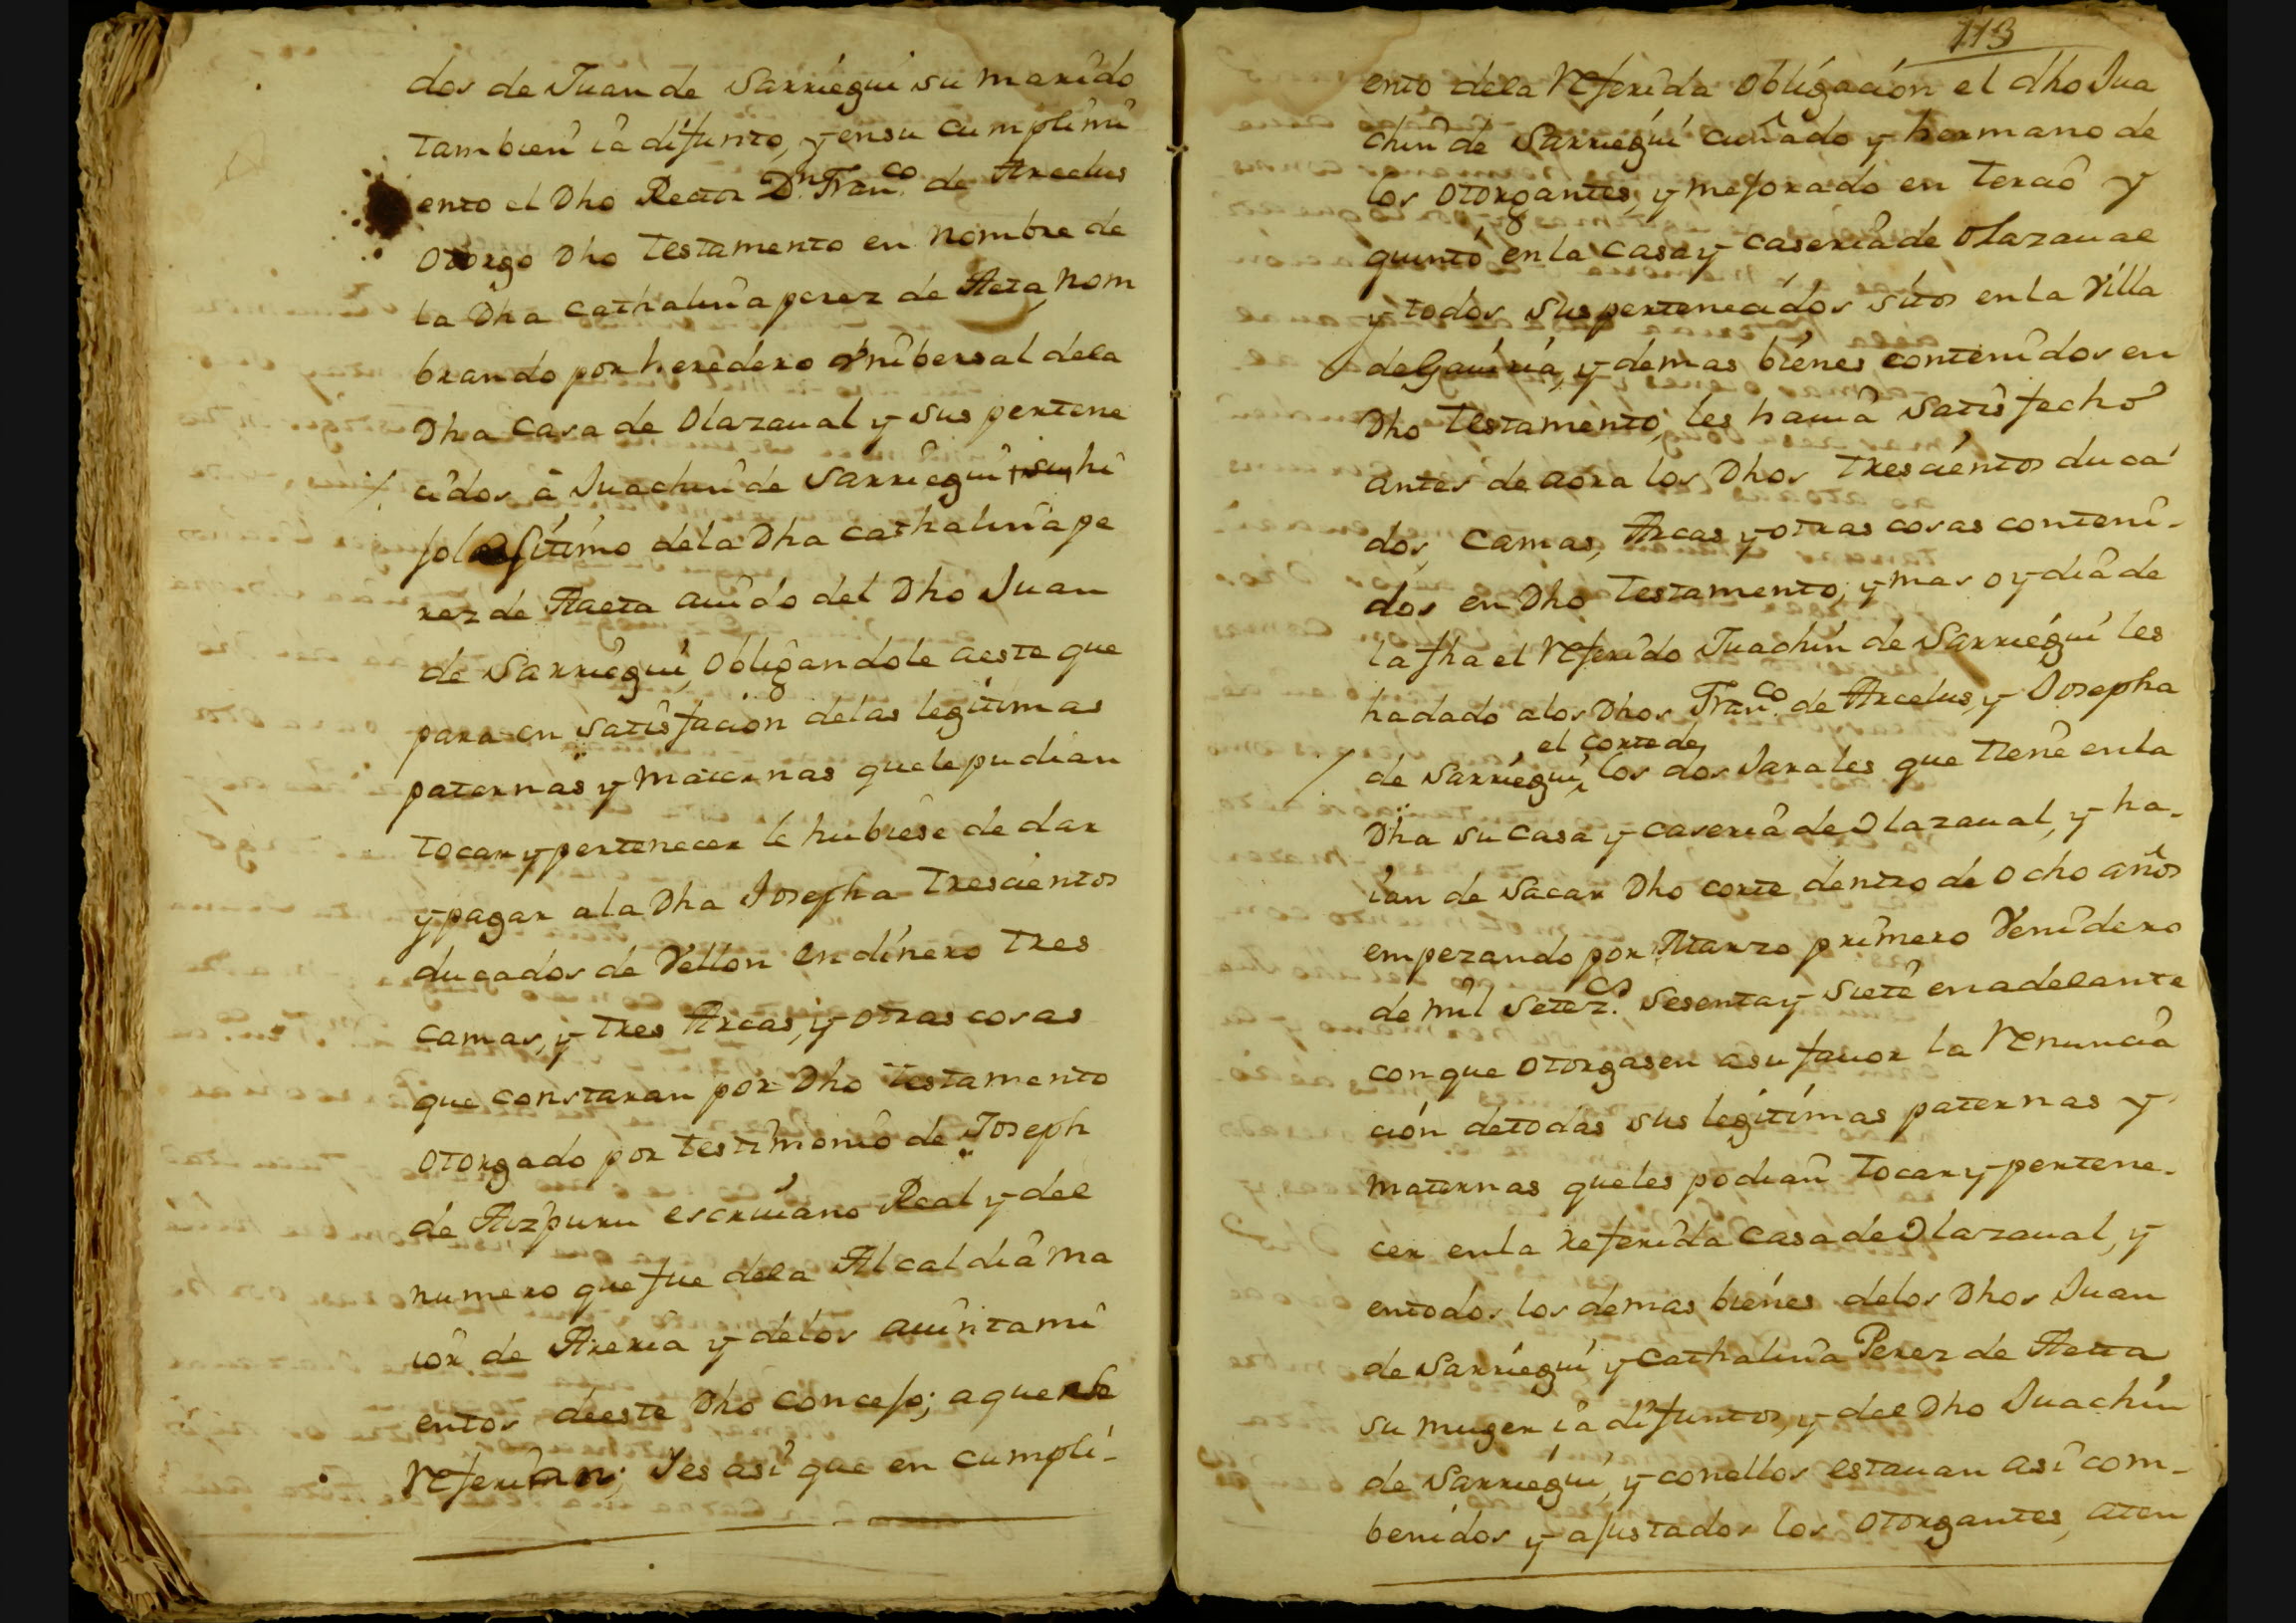 dos de Juan de Sarriegui su marido
tambien ia difunto, y en su cumplimi
ento el Dho Rector Dn. Franco. de Arcelus
otorgo Dho testamento en nombre de
la Dha Cathalina perez de Aeta, nom
brando por heredero Vnibersal dela
Dha Casa de Olazaual y sus pertene
cidos â Juachin de Sarriegui, su hi
jo legitimo dela Dha Cathalina pe
rez de Aaeta auido del Dho Juan
de Sarriegui, Obligandole a este que
para en satisfacion delas legitimas
paternas y maternas que le pudian
tocar y pertenecer le hubiese de dar
y pagar ala Dha Josepha Trescientos
ducados de Vellon en dinero tres
camas, y tres Arcas, y otras cosas
que constaran por Dho testamento
otorgado por testimonio de Joseph
de Aizpuru escriuano Real y del
numero que fue dela Alcaldia ma
ior de Areria y delos auintami
entos deeste Dho Concejo; a que se
referian; Y es asi que en cumpli-
113
ento dela referida obligacion el dho Jua
chin de Sarriegui cuñado y hermano de
los otorgantes, y mejorado en tercio y
quinto en la casa y caseria de Olazaual
y todos sus pertenecidos sitos en la Villa
de Gauiria, y demas bienes contenidos en
Dho testamento, les hauia satisfecho
antes de aora los Dhos trescientos duca
dos, camas, Arcas y otras cosas conteni-
dos en Dho testamento; y mas oy dia de
la fha el referido Juachin de Sarriegui les
ha dado a los Dhos Franco. de Arcelus, y Josepha
el corte de
de Sarriegui, los dos Jarales que tiene en la
Dha su casa y caseria de Olazaual, y ha-
ian de sacar Dho corte dentro de ocho años
empezando por Marzo primero Venidero
de mil setezos. sesenta y siete en adelante
con que otorgasen a su fauor la renuncia
cion de todas sus legitimas paternas y
maternas que les podian tocar y pertene-
cer en la referida Casa de Olazaual, y
en todos los demas bienes delos Dhos Juan
de Sarriegui y Cathalina Perez de Aeta
su muger ia difuntos, y del Dho Juachin
de Sarriegui, y con ellos estauan asi com-
benidos y ajustados los otorgantes, aten